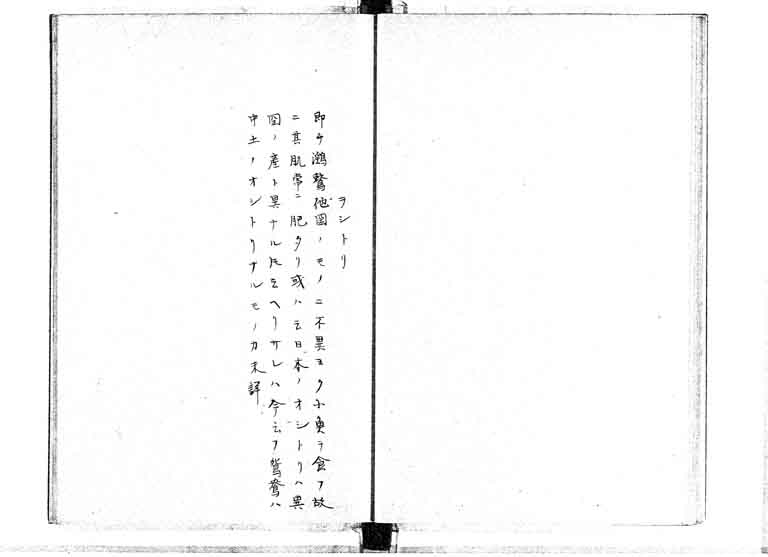 ヲシトリ
即チ鸂鶒他国ノモノニ不異ヨク小魚ヲ食フ故
ニ其肌常ニ肥タリ或ハ云日本ノオシトリハ異
国ノ産ト異ナル𪜈云ヘリサレハ今云フ鴛鴦ハ
中土ノオシトリナルモノカ未詳